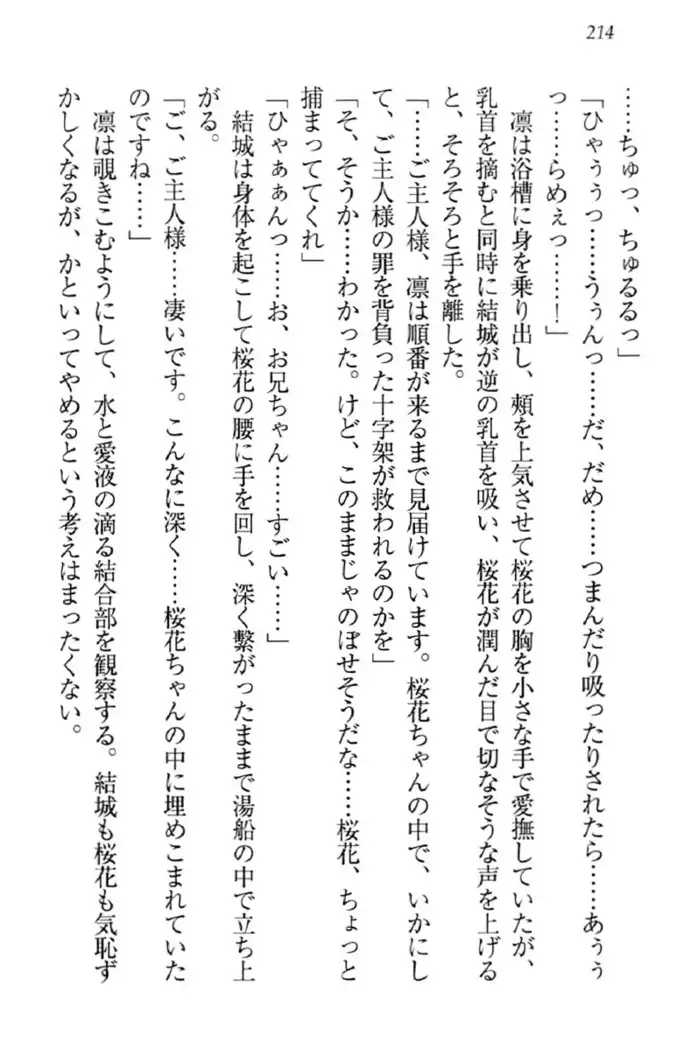 214
……ちゅっ、ちゅるるっ」
「ひゃぅぅっ……うぅんっ……だ、だめ……つまんだり吸ったりされたら……あぅぅ
っ……らめぇっ……！」
凛は浴槽に身を乗り出し、頬を上気させて桜花の胸を小さな手で愛撫していたが、
乳首を摘むと同時に結城が逆の乳首を吸い、桜花が潤んだ目で切なそうな声を上げる
と、そろそろと手を離した。
「……ご主人様、凛は順番が来るまで見届けています。桜花ちゃんの中で、いかにし
て、ご主人様の罪を背負った十字架が救われるのかを」
「そ、そうか……わかった。けど、このままじゃのぼせそうだな……桜花、ちょっと
捕まっててくれ」
「ひゃぁぁんっ……お、お兄ちゃん……すごい……」
結城は身体を起こして桜花の腰に手を回し、深く繋がったままで湯船の中で立ち上
がる。
「ご、ご主人様……凄いです。こんなに深く……桜花ちゃんの中に埋めこまれていた
のですね……」
凛は覗きこむようにして、水と愛液の滴る結合部を観察する。結城も桜花も気恥ず
かしくなるが、かといってやめるという考えはまったくない。